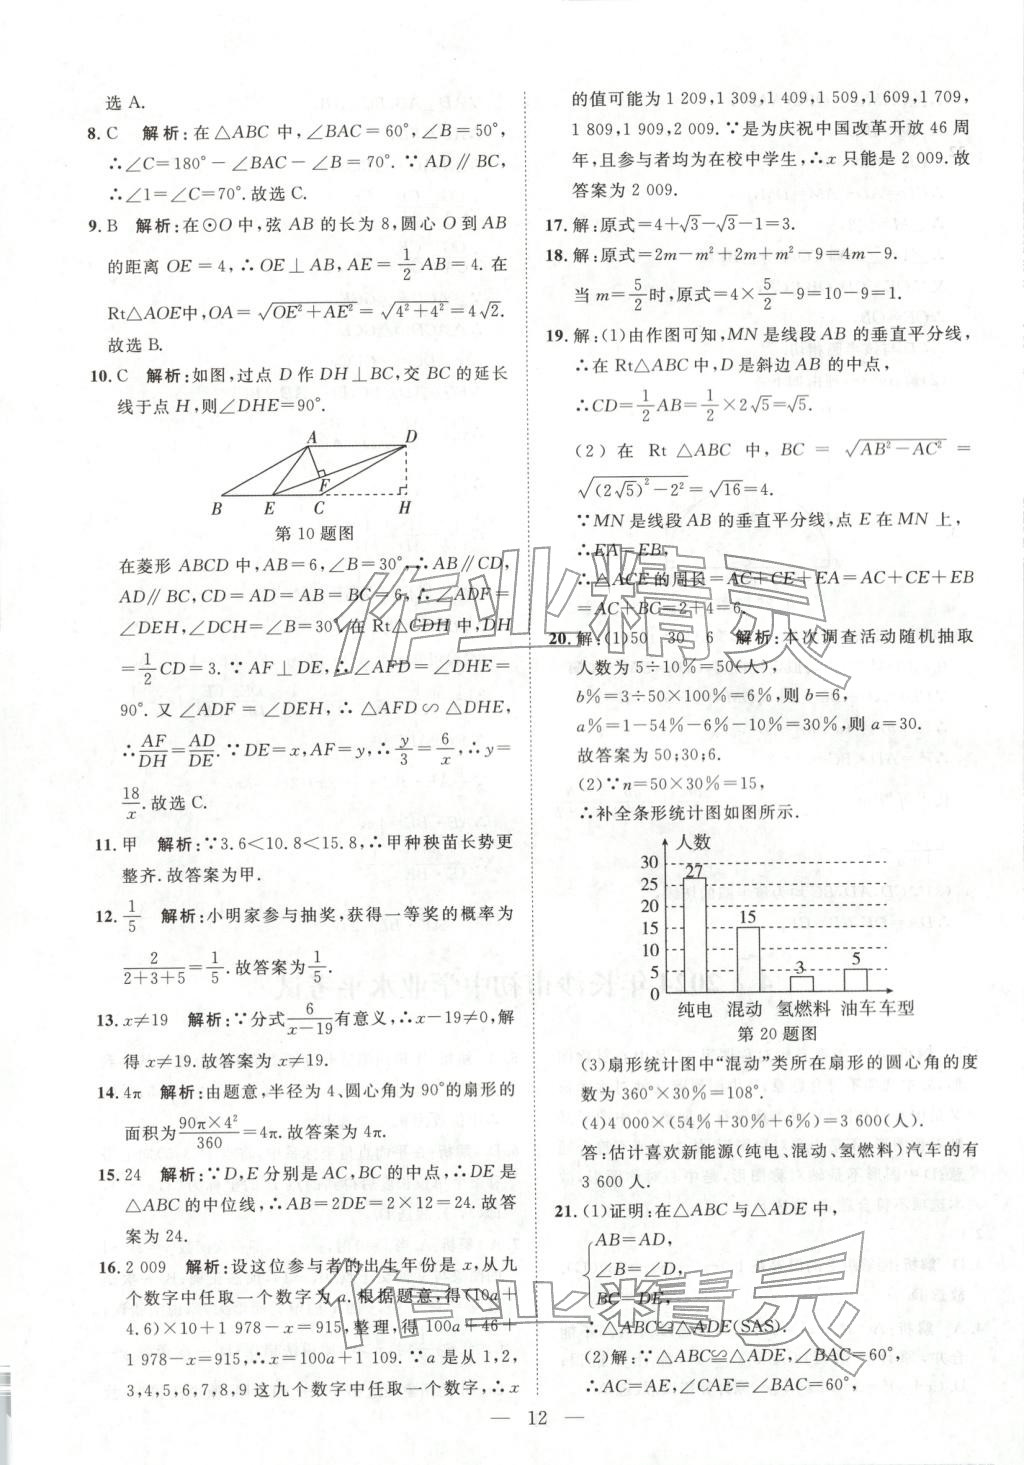 选 A.
8. C　解析:在△ABC 中,∠BAC=60°,∠B=50°,
∴∠C=180°-∠BAC-∠B=70°. ∵AD∥BC,
∴∠1=∠C=70°.故选 C.
9. B　解析:在⊙O 中,弦 AB 的长为 8,圆心 O 到 AB
的距离 OE=4,∴OE⊥AB,AE=1/2 AB=4. 在
Rt△AOE中,OA=√(OE²+AE²)=√(4²+4²)=4√2.
故选 B.
10. C　解析:如图,过点 D 作 DH⊥BC,交 BC 的延长
线于点 H,则∠DHE=90°.
A D
F
B E C H
第 10 题图
在菱形 ABCD 中,AB=6,∠B=30°,∴AB∥CD,
AD∥BC,CD=AD=AB=BC=6,∴∠ADF=
∠DEH,∠DCH=∠B=30°.在 Rt△CDH 中,DH
=1/2 CD=3. ∵AF⊥DE,∴∠AFD=∠DHE=
90°. 又∠ADF=∠DEH,∴△AFD∽△DHE,
∴AF/DH=AD/DE.∵DE=x,AF=y,∴y/3=6/x,∴y=
18/x.故选 C.
11. 甲　解析:∵3.6<10.8<15.8,∴甲种秧苗长势更
整齐.故答案为甲.
12. 1/5　解析:小明家参与抽奖,获得一等奖的概率为
2/(2+3+5)=1/5.故答案为1/5.
13. x≠19　解析:∵分式6/(x-19)有意义,∴x-19≠0,解
得 x≠19.故答案为 x≠19.
14. 4π　解析:由题意,半径为 4、圆心角为 90°的扇形的
面积为(90π×4²)/360=4π.故答案为 4π.
15. 24　解析:∵D,E 分别是 AC,BC 的中点,∴DE 是
△ABC 的中位线,∴AB=2DE=2×12=24.故答
案为 24.
16. 2 009　解析:设这位参与者的出生年份是 x,从九
个数字中任取一个数字为 a. 根据题意,得(10a+
4.6)×10+1 978-x=915,整理,得 100a+46+
1 978-x=915,∴x=100a+1 109.∵a 是从 1,2,
3,4,5,6,7,8,9 这九个数字中任取一个数字,∴x
的值可能为 1 209,1 309,1 409,1 509,1 609,1 709,
1 809,1 909,2 009. ∵是为庆祝中国改革开放 46 周
年,且参与者均为在校中学生,∴x 只能是 2 009.故
答案为 2 009.
17. 解:原式=4+√3-√3-1=3.
18. 解:原式=2m-m²+2m+m²-9=4m-9.
当 m=5/2时,原式=4×5/2-9=10-9=1.
19. 解:(1)由作图可知,MN 是线段 AB 的垂直平分线,
∴在 Rt△ABC 中,D 是斜边 AB 的中点,
∴CD=1/2 AB=1/2×2√5=√5.
(2)在 Rt△ABC 中,BC=√(AB²-AC²)=
√((2√5)²-2²)=√16=4.
∵MN 是线段 AB 的垂直平分线,点 E 在 MN 上,
∴EA=EB,
∴△ACE 的周长=AC+CE+EA=AC+CE+EB
=AC+BC=2+4=6.
20. 解:(1)50　30　6　解析:本次调查活动随机抽取
人数为 5÷10%=50(人),
b%=3÷50×100%=6%,则 b=6,
a%=1-54%-6%-10%=30%,则 a=30.
故答案为 50;30;6.
(2)∵n=50×30%=15,
∴补全条形统计图如图所示.
人数
30
25
20
15
10
5
0
27
15
3
5
纯电 混动 氢燃料 油车 车型
第 20 题图
(3)扇形统计图中“混动”类所在扇形的圆心角的度
数为 360°×30%=108°.
(4)4 000×(54%+30%+6%)=3 600(人).
答:估计喜欢新能源(纯电、混动、氢燃料)汽车的有
3 600 人.
21. (1)证明:在△ABC 与△ADE 中,
AB=AD,
∠B=∠D,
BC=DE,
∴△ABC≌△ADE(SAS).
(2)解:∵△ABC≌△ADE,∠BAC=60°,
∴AC=AE,∠CAE=∠BAC=60°,
— 12 —
作业精灵
作业精灵